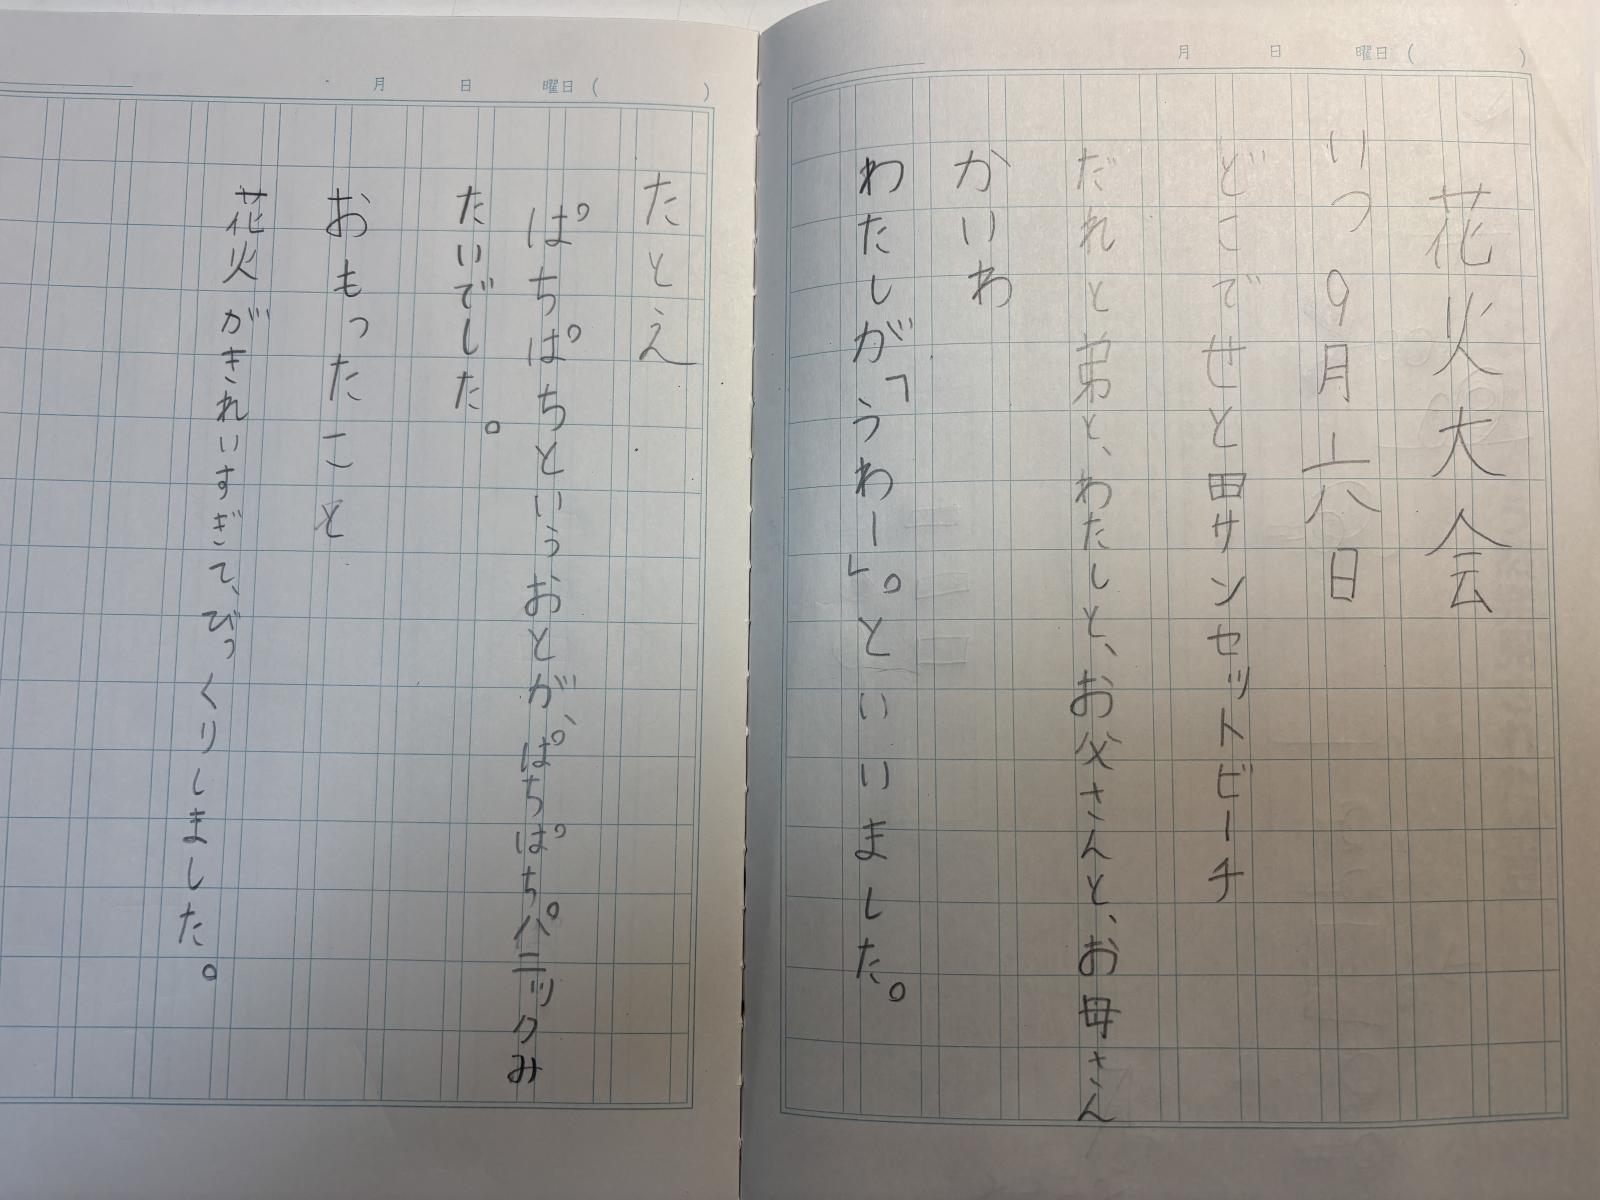 月 日 曜日( )
花火大会
いつ 9月二八日
どこで せと田サンセットビーチ
だれと 弟と、わたしと、お父さんと、お母さん
かいわ
わたしが「うわー」。といいました。
月 日 曜日( )
たとえ
ぱちぱちというおとが、ぱちぱちパニックみ
たいでした。
おもったこと
花火がきれいすぎて、びっくりしました。